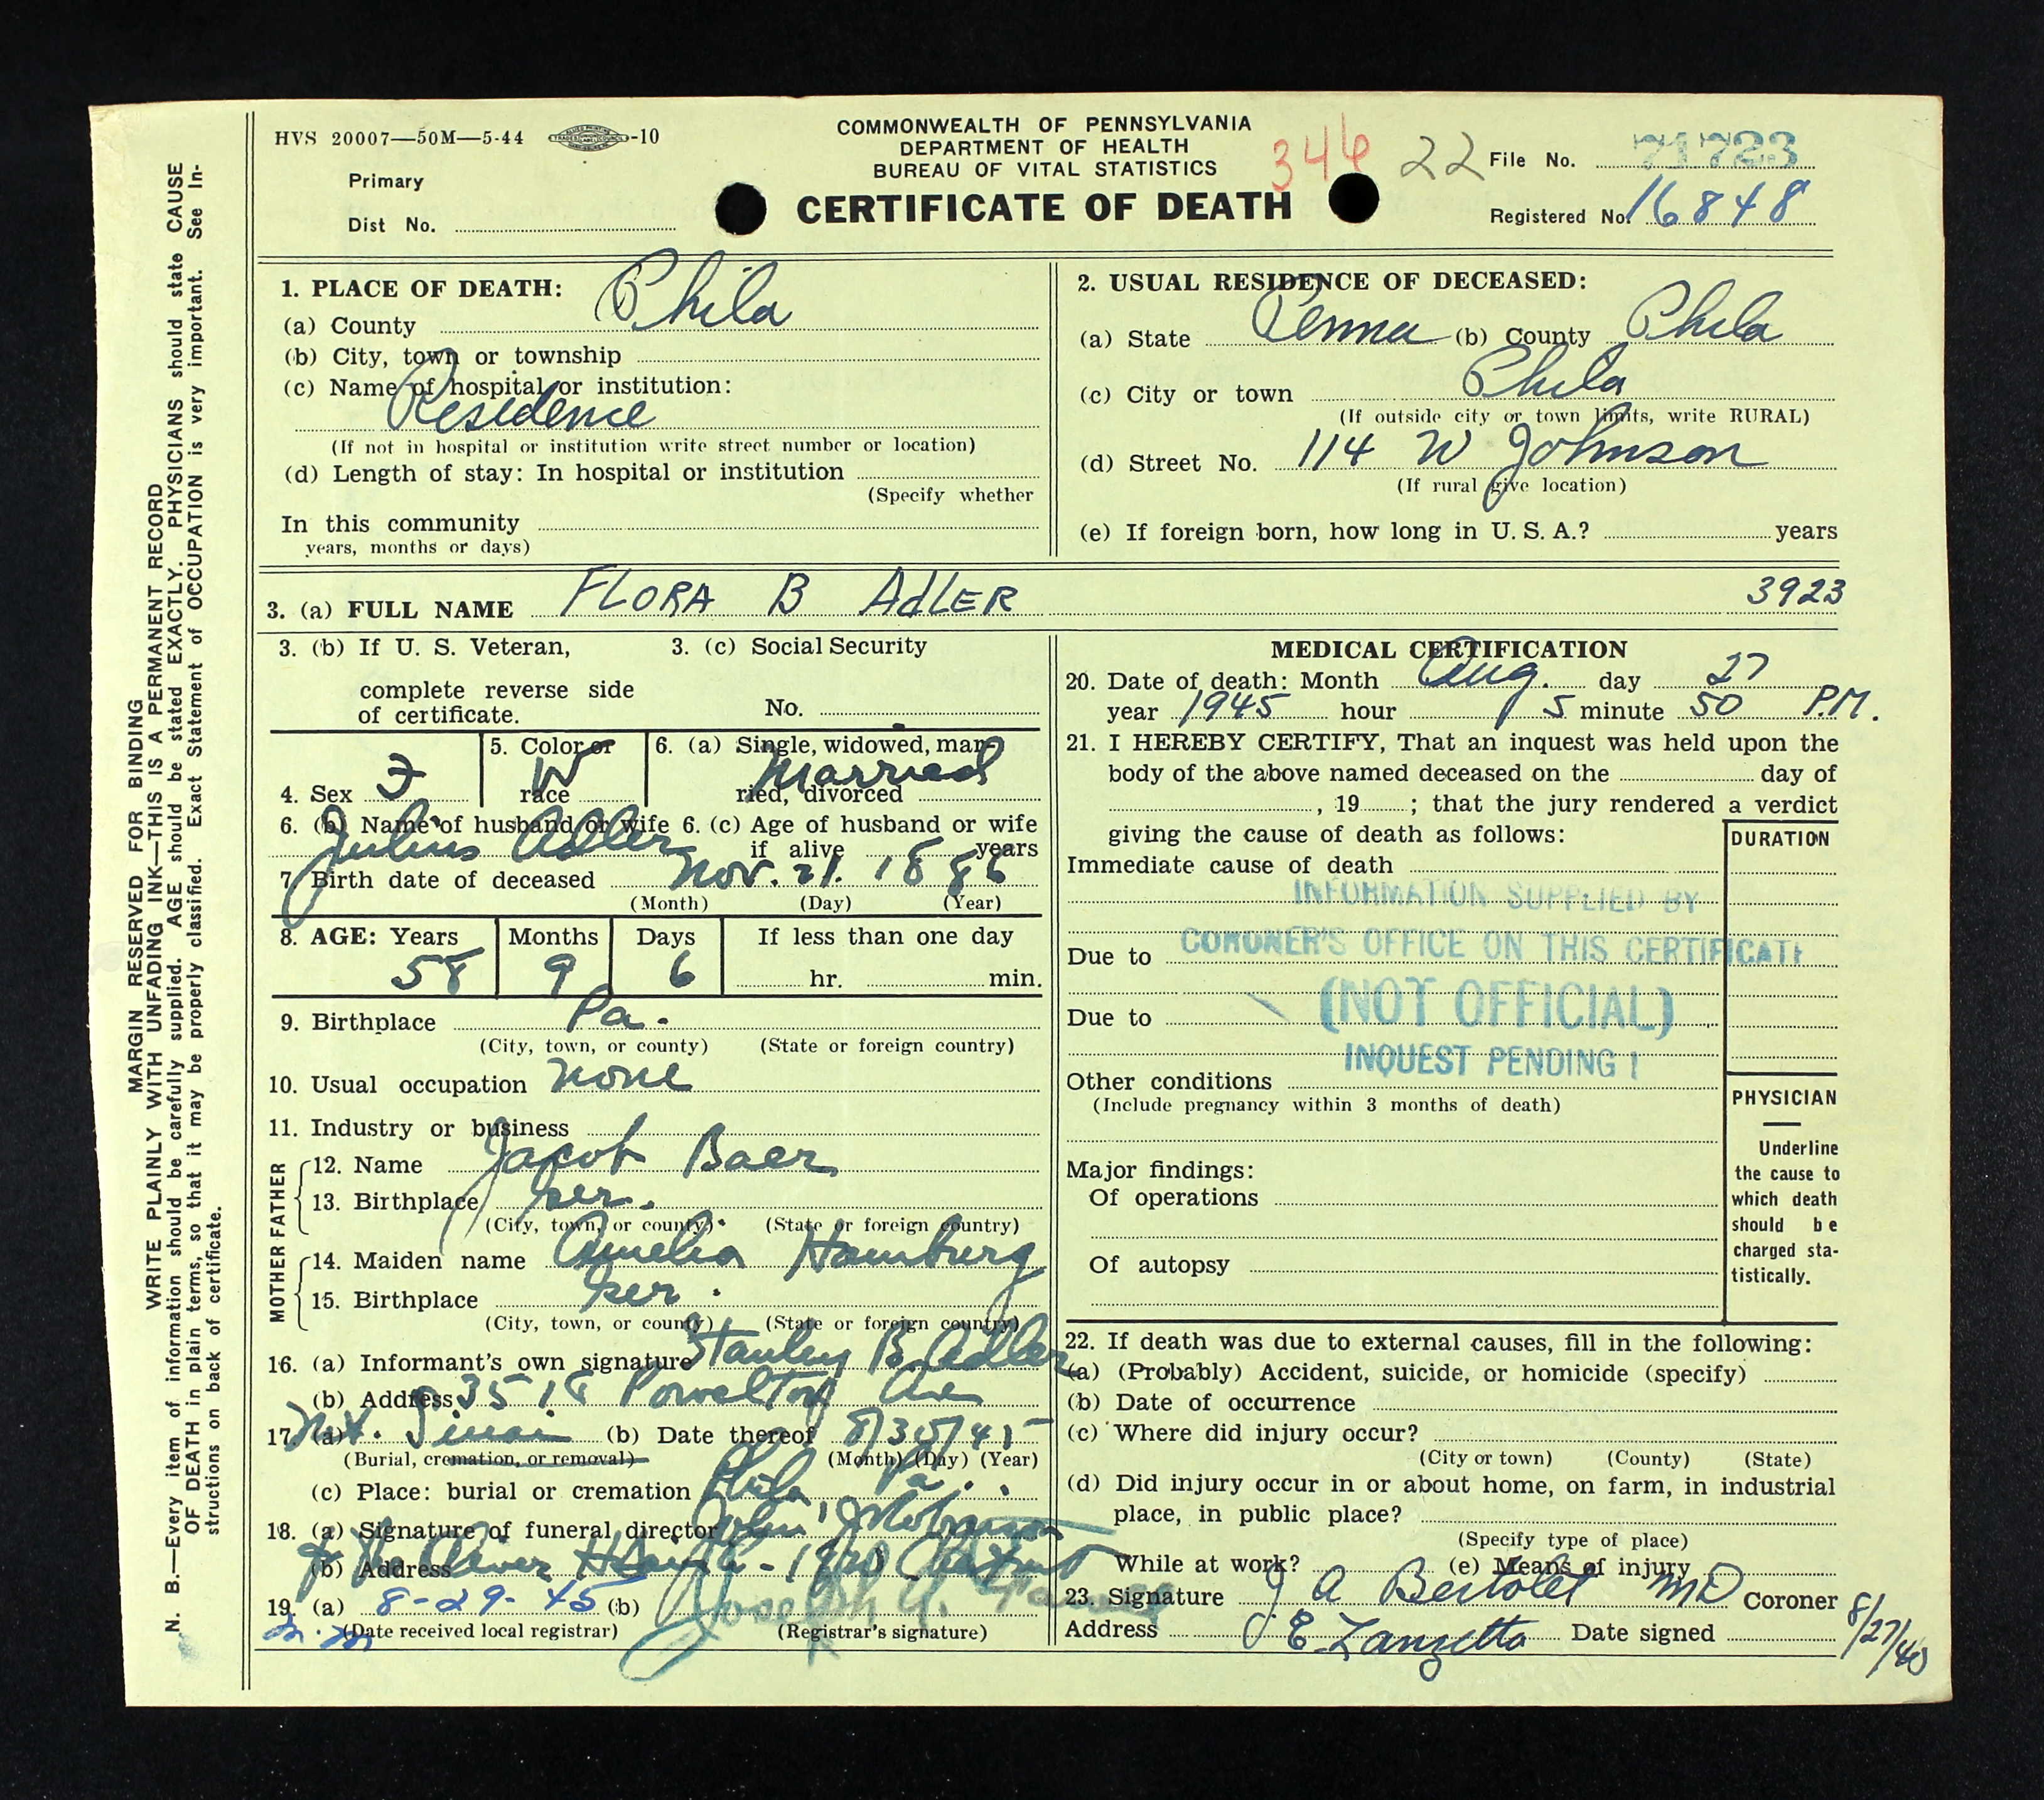 HVS 20007—50M—5-44 -10
COMMONWEALTH OF PENNSYLVANIA
DEPARTMENT OF HEALTH
BUREAU OF VITAL STATISTICS
CERTIFICATE OF DEATH
346 22
File No. 71723
Registered No. 16848
Primary
Dist No.
MARGIN RESERVED FOR BINDING
WRITE PLAINLY WITH UNFADING INK—THIS IS A PERMANENT RECORD
N. B.—Every item of information should be carefully supplied. AGE should be stated EXACTLY. PHYSICIANS should state CAUSE
OF DEATH in plain terms, so that it may be properly classified. Exact Statement of OCCUPATION is very important. See In-
structions on back of certificate.
1. PLACE OF DEATH:
(a) County Phila
(b) City, town or township
(c) Name of hospital or institution:
Residence
(If not in hospital or institution write street number or location)
(d) Length of stay: In hospital or institution
(Specify whether
In this community
years, months or days)
2. USUAL RESIDENCE OF DECEASED:
(a) State Penna (b) County Phila
(c) City or town Phila
(If outside city or town limits, write RURAL)
(d) Street No. 114 W Johnson
(If rural give location)
(e) If foreign born, how long in U. S. A.? years
3. (a) FULL NAME FLORA B ADLER 3923
3. (b) If U. S. Veteran,
complete reverse side
of certificate.
3. (c) Social Security
No.
4. Sex F
5. Color or
race W
6. (a) Single, widowed, mar-
ried, divorced Married
6. (b) Name of husband or wife
Julius Adler
6. (c) Age of husband or wife
if alive years
7. Birth date of deceased Nov. 21. 1886
(Month) (Day) (Year)
8. AGE: Years Months Days If less than one day
58 9 6 hr. min.
9. Birthplace Pa.
(City, town, or county) (State or foreign country)
10. Usual occupation none
11. Industry or business
FATHER
12. Name Jacob Baer
13. Birthplace Ger.
(City, town, or county) (State or foreign country)
MOTHER
14. Maiden name Amelia Hamburg
15. Birthplace Ger.
(City, town, or county) (State or foreign country)
16. (a) Informant's own signature Stanley B. Adler
(b) Address 3518 Powelton Ave
17. (a) Mt. Sinai (b) Date thereof 8/30/45
(Burial, cremation, or removal) (Month) (Day) (Year)
(c) Place: burial or cremation Phila, Pa.
18. (a) Signature of funeral director John J
(b) Address Oliver H Bair Co - 1820 Chestnut
19. (a) 8-29-45 (b) Joseph
(Date received local registrar) (Registrar's signature)
MEDICAL CERTIFICATION
20. Date of death: Month Aug. day 27
year 1945 hour 5 minute 50 P.M.
21. I HEREBY CERTIFY, That an inquest was held upon the
body of the above named deceased on the day of
, 19 ; that the jury rendered a verdict
giving the cause of death as follows:
DURATION
Immediate cause of death
INFORMATION SUPPLIED BY
Due to CORONER'S OFFICE ON THIS CERTIFICATE
Due to (NOT OFFICIAL)
INQUEST PENDING !
Other conditions
(Include pregnancy within 3 months of death)
Major findings:
Of operations
Of autopsy
PHYSICIAN
Underline
the cause to
which death
should be
charged sta-
tistically.
22. If death was due to external causes, fill in the following:
(a) (Probably) Accident, suicide, or homicide (specify)
(b) Date of occurrence
(c) Where did injury occur?
(City or town) (County) (State)
(d) Did injury occur in or about home, on farm, in industrial
place, in public place?
(Specify type of place)
While at work? (e) Means of injury
23. Signature J A Bertolet MD Coroner
Address J E Zanzetta Date signed 8/27/45